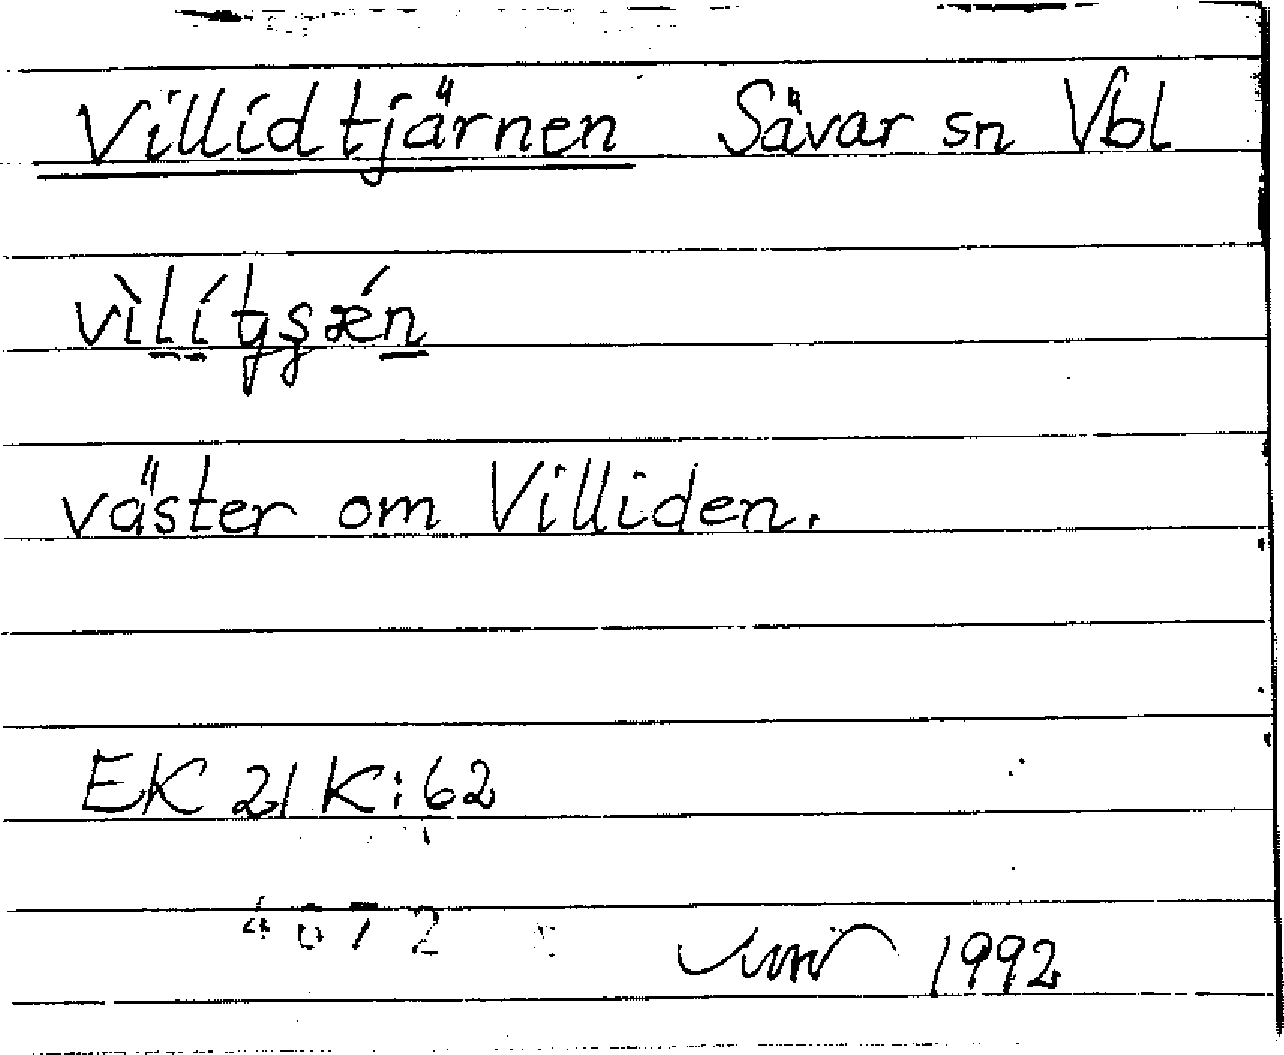 Villidtjärnen Sävar sn Vbl
väster om Villiden.
EK 21 K:62
1992